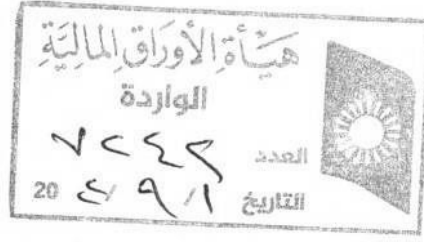 هَيْأَةُ الأَوْرَاقِ المَالِيَّةِ
الواردة
العدد ٧٢٤٢
التاريخ ١ / ٩ / 20٢٤